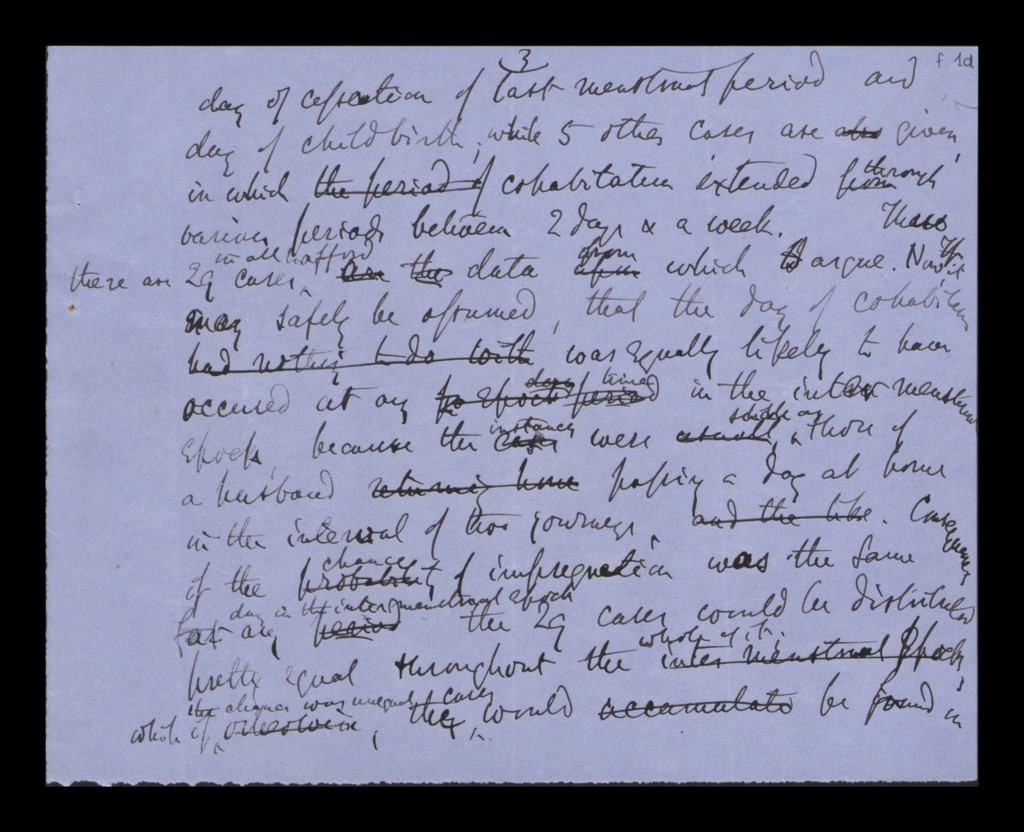 3
f. 1d
day of cessation of last menstrual period and
day of childbirth, while 5 other cases are also given,
in which the period of cohabitation extended from through
various periods between 2 days & a week. Thus
in all afford
there are 29 cases, are the data upon from which to argue. Now it
may safely be assumed, that the day of cohabitation
had nothing to do with was equally likely to have
occured at any epoch period day time in the inter menstrual
epoch, because the cases instances were usually, such as those of
a husband returning home passing a day at home
in the interval of two journeys, and the like. Consequently
if the probability chance of impregnation was the same
day in the inter menstrual epoch
for any period the 29 cases would be distributed
pretty equal throughout the inter menstrual Epoch, whole of it.
the chance was unequal cases
while if, otherwise, they would accumulate be found in